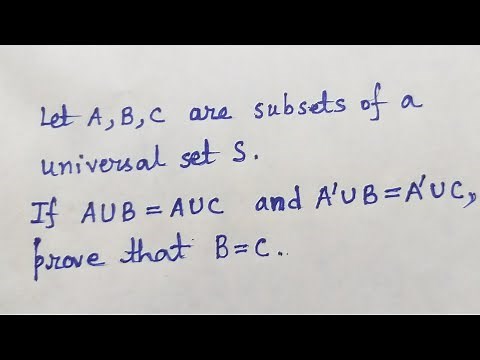 Let A, B, C are subsets of a
universal set S.
If A∪B = A∪C and A'∪B = A'∪C,
prove that B = C.